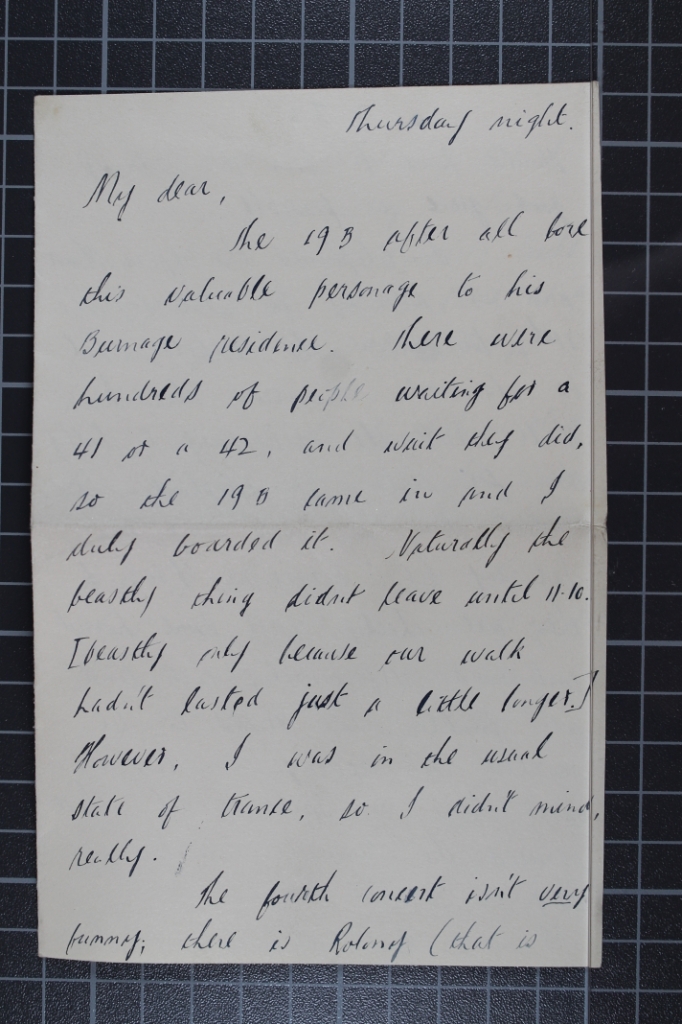 Thursday night.
My dear,
The 19B after all bore
this valuable personage to his
Burnage residence. There were
hundreds of people waiting for a
41 or a 42, and wait they did,
so the 19B came in and I
duly boarded it. Naturally the
beastly thing didn't leave until 11.10.
[beastly only because our walk
hadn't lasted just a little longer.]
However, I was in the usual
state of trance, so I didn't mind,
really.
The fourth concert isn't very
funny; there is (that is